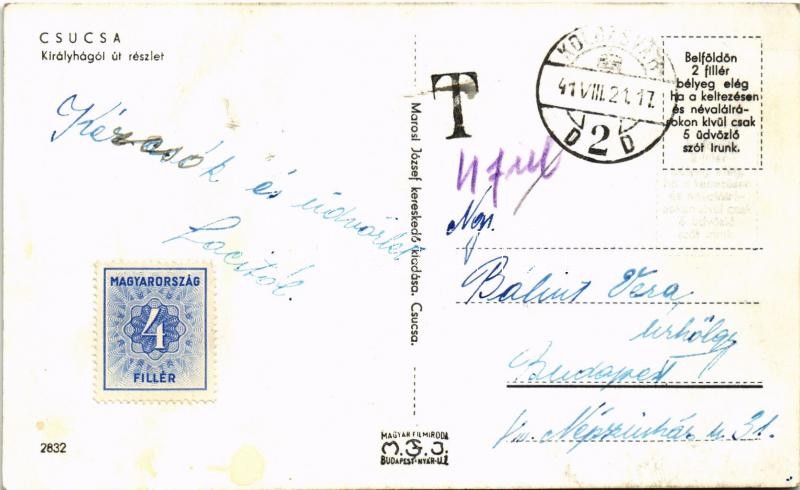 CSUCSA
Királyhágói út részlet
Kézcsók és üdvözlet
Lacitól.
MAGYARORSZÁG
4
FILLÉR
2832
Marosi József kereskedő kiadása. Csucsa.
MAGYAR FILMIRODA
M.F.I.
BUDAPEST-NYÁR-U.2
T
4 fill
KOLOZSVÁR
41 VIII. 21. 17
D 2 D
Belföldön
2 fillér
bélyeg elég
ha a keltezésen
és névaláírá-
sokon kívül csak
5 üdvözlő
szót irunk.
Bálint Vera
urhölgy
Budapest
Népszinház u 31.